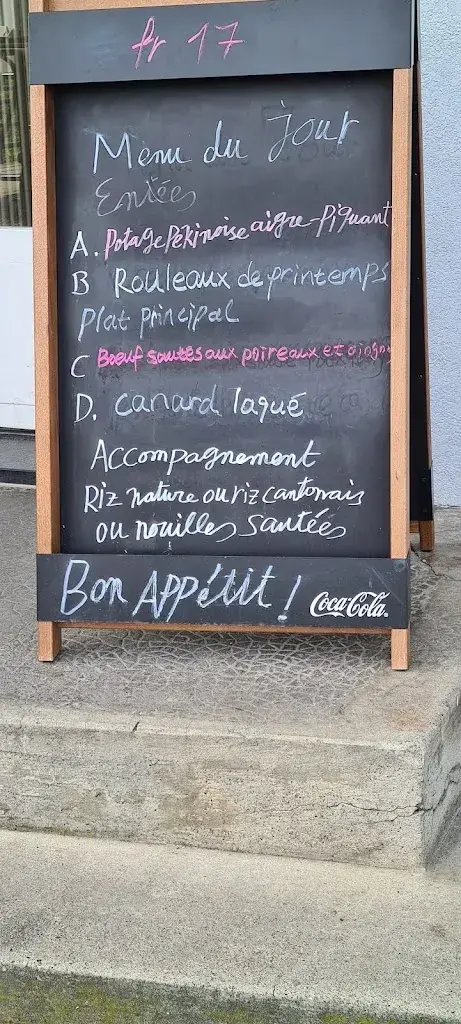 fr 17
Menu du jour
Entées
A. Potage Pékinoise aigre-piquant
B Rouleaux de printemps
Plat principal
C Bœuf sautés aux poireaux et oignon
D. canard laqué
Accompagnement
Riz nature ou riz cantonnais
ou nouilles sautées
Bon Appétit !
Coca-Cola